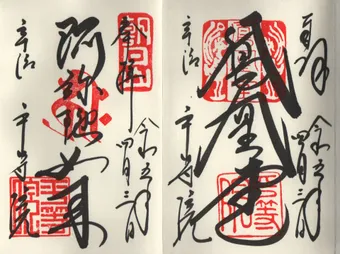 奉拝
令和五年四月三日
阿弥陀如来
宇治
平等院
奉拝
令和五年四月三日
鳳凰堂
宇治
平等院